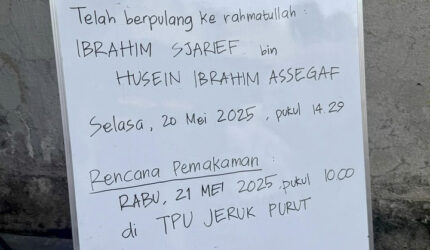 Telah berpulang ke rahmatullah :
IBRAHIM SJARIEF bin
HUSEIN IBRAHIM ASSEGAF
Selasa, 20 Mei 2025, pukul 14.29
Rencana Pemakaman :
RABU, 21 MEI 2025, pukul 10.00
di TPU JERUK PURUT